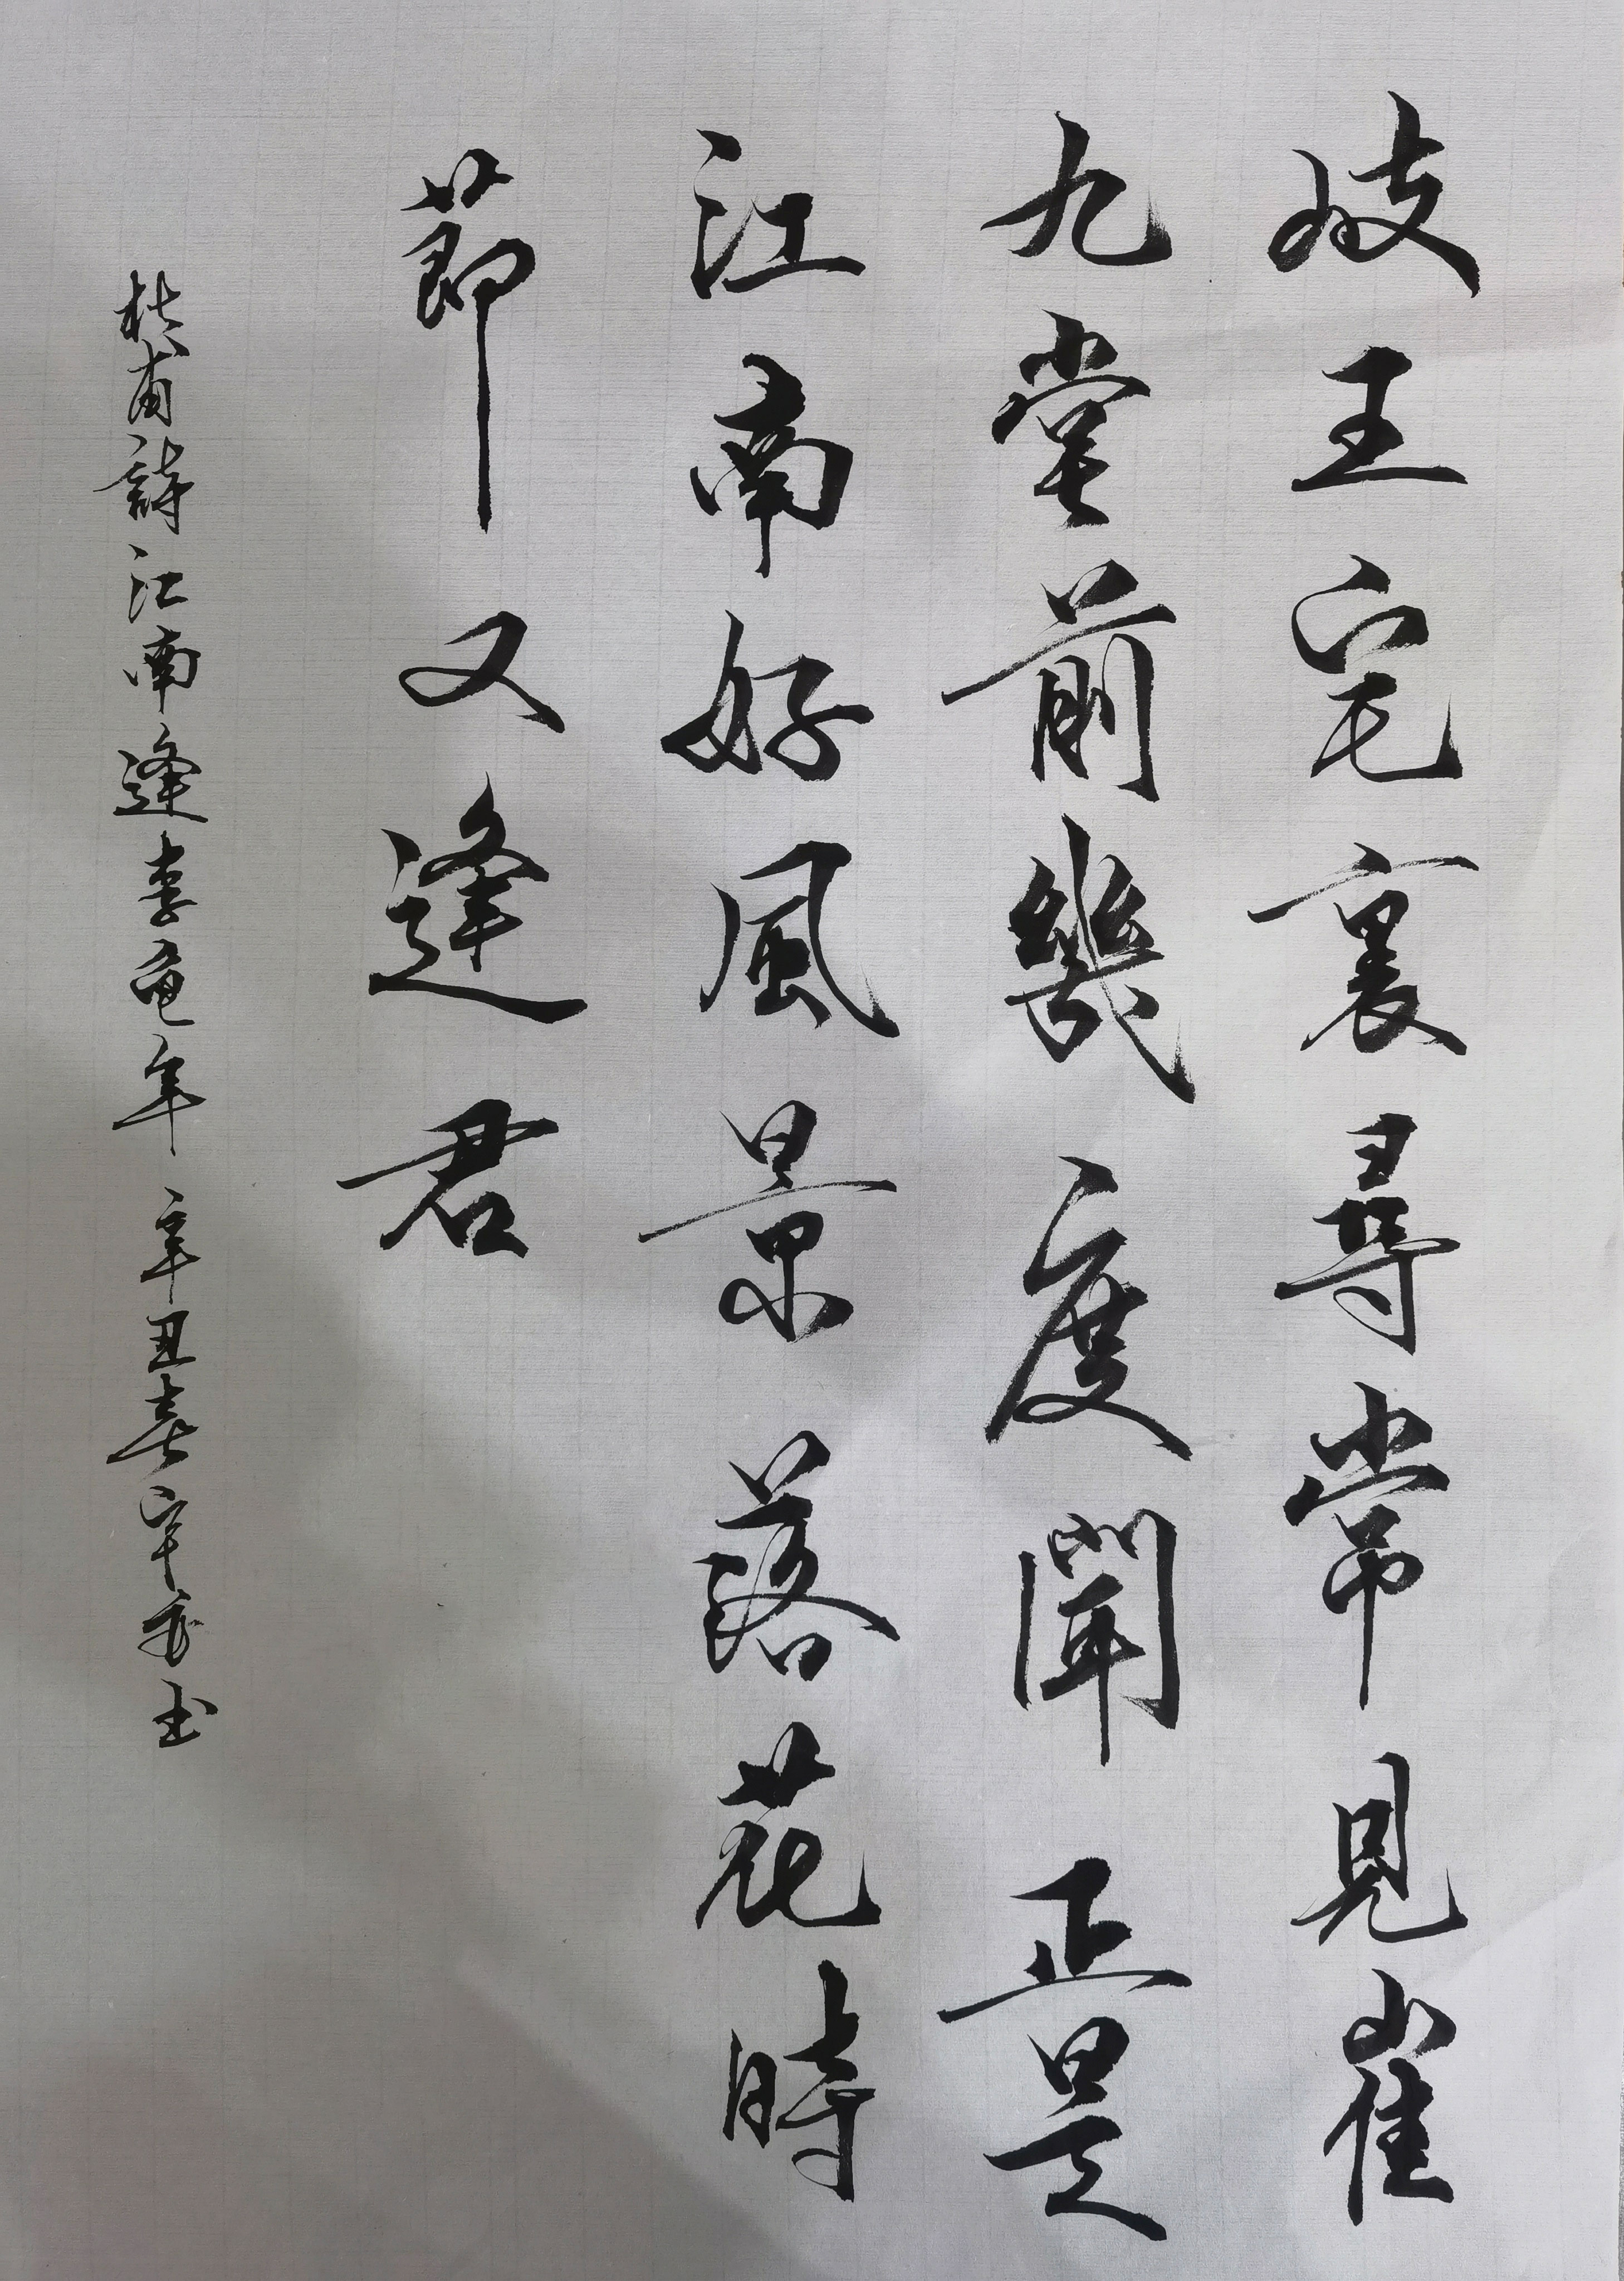 岐王宅裏尋常見崔
九堂前幾度聞正是
江南好風景落花時
節又逢君
杜甫詩江南逢李龜年 辛丑春 书